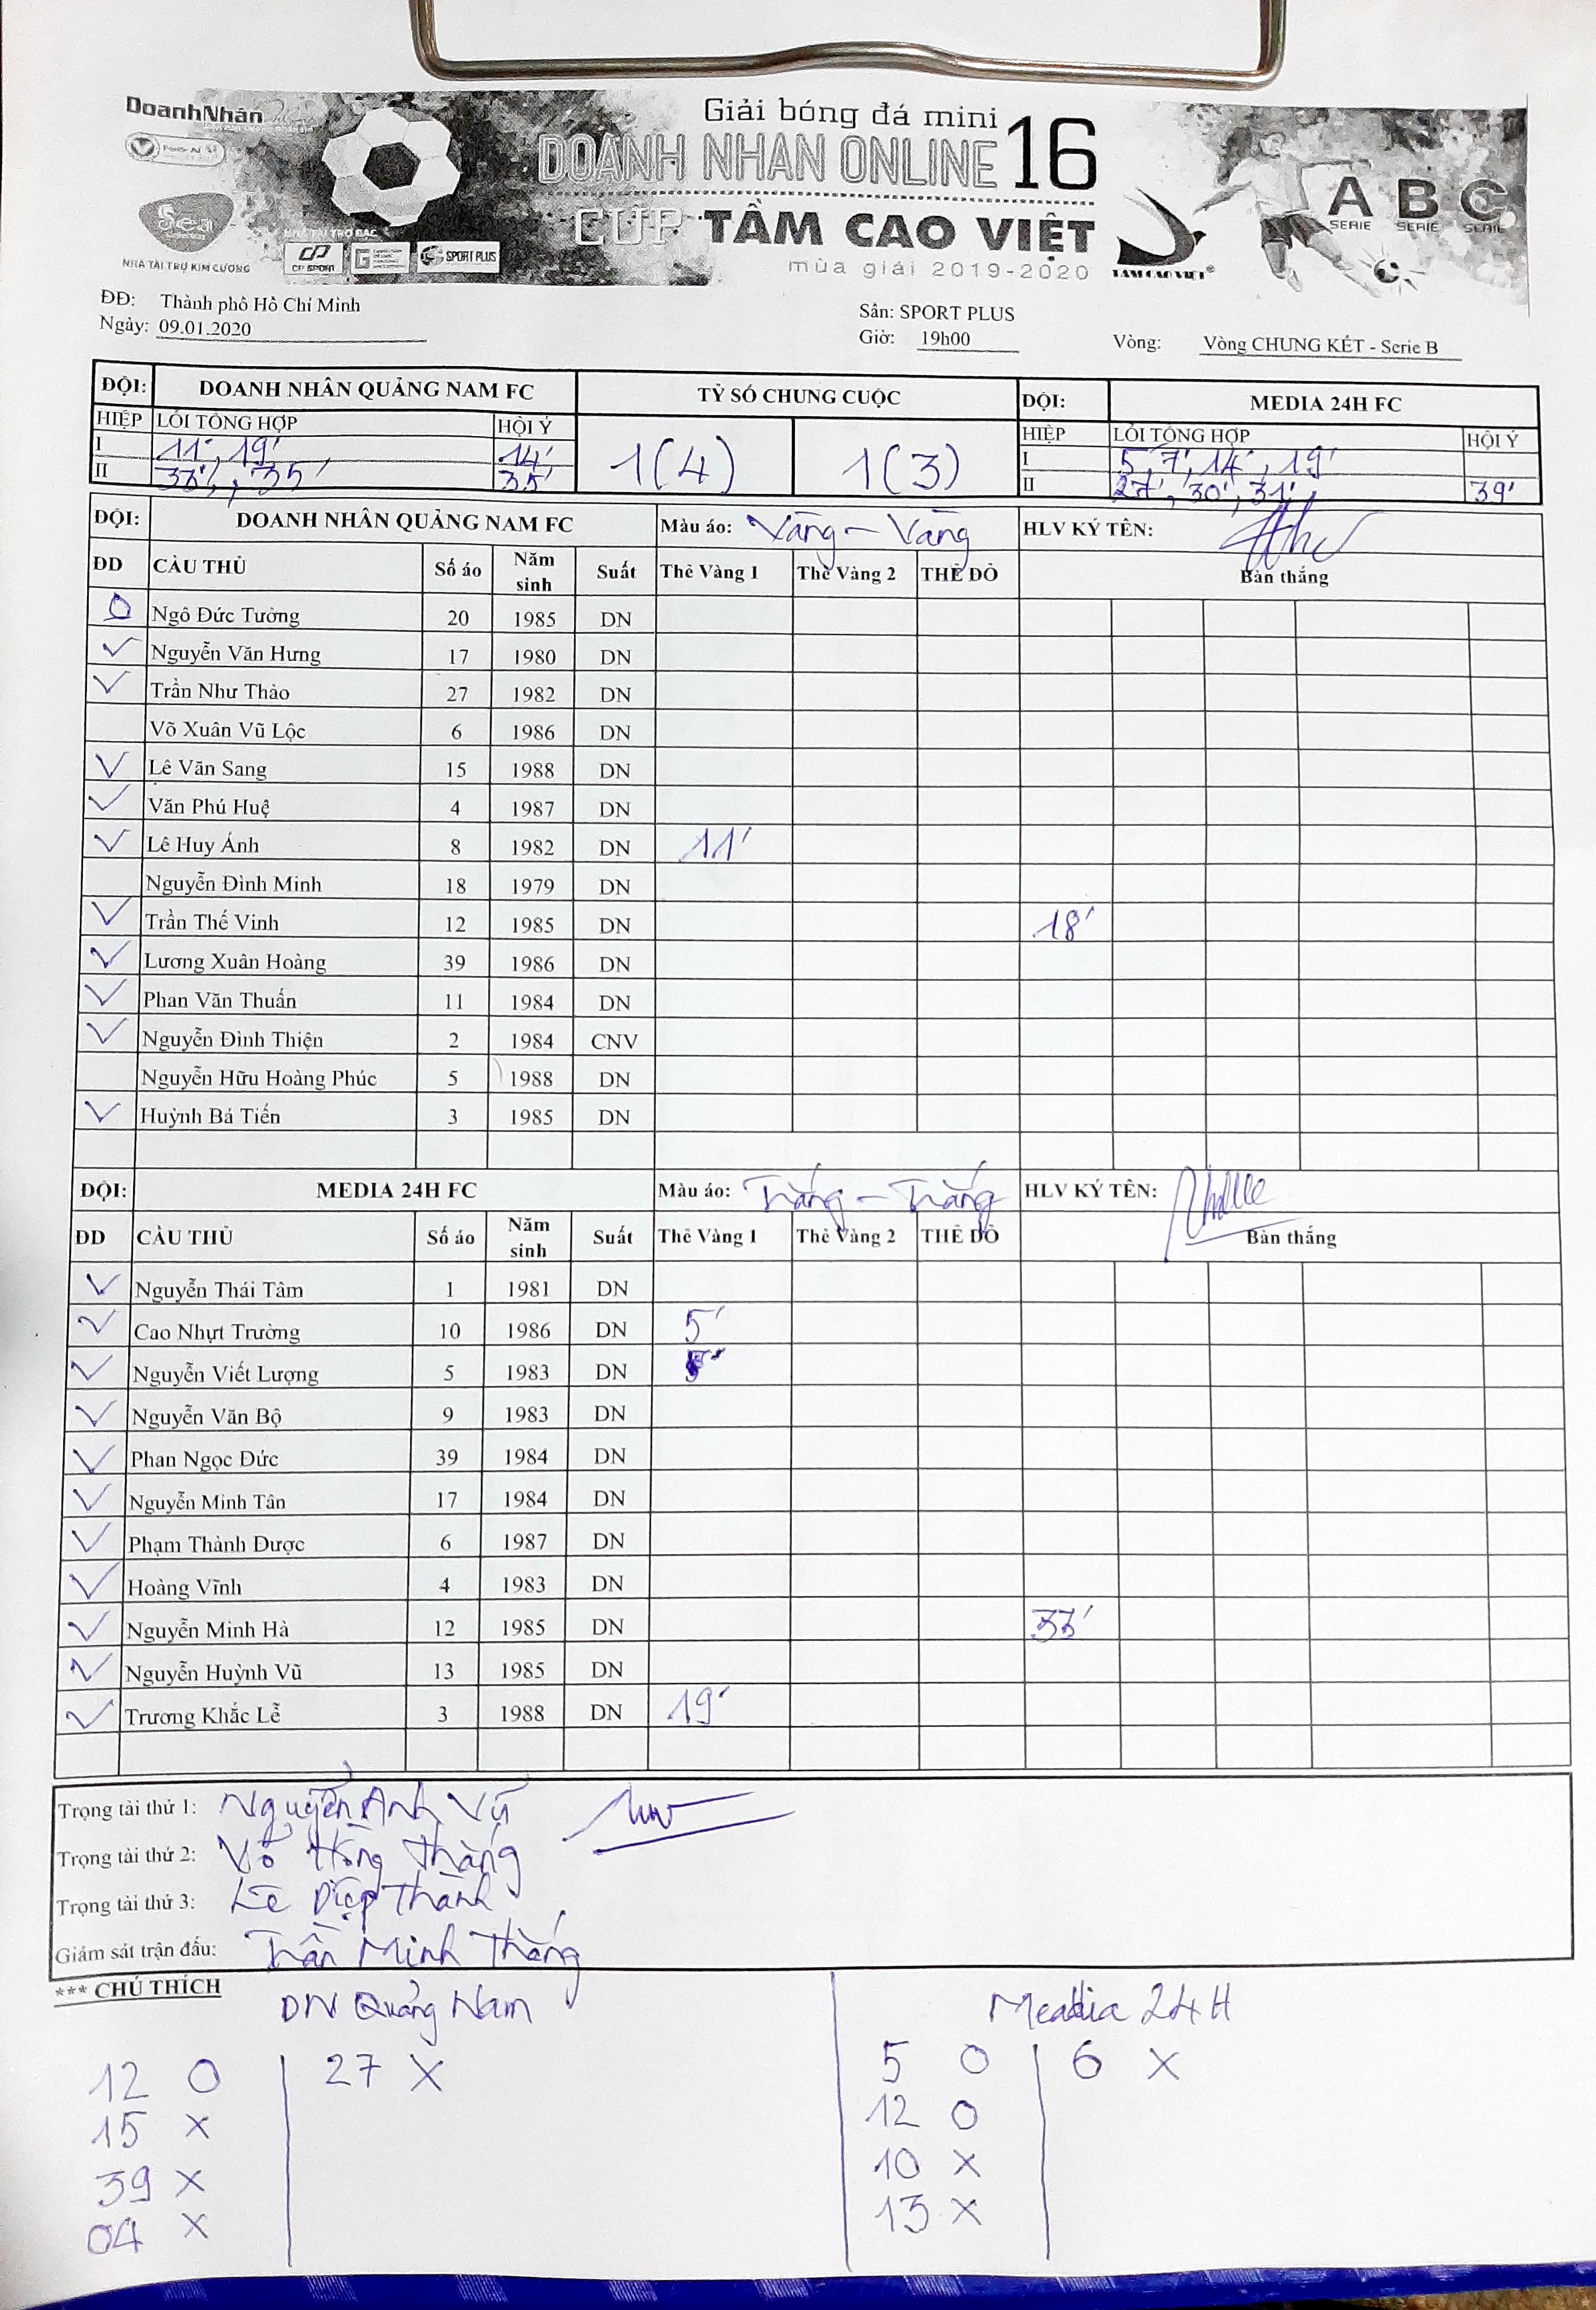 DoanhNhân
NHÀ TÀI TRỢ KIM CƯƠNG
NHÀ TÀI TRỢ BẠC
CP SPORT
SPORT PLUS
Giải bóng đá mini
DOANH NHÂN ONLINE 16
CUP TẦM CAO VIỆT
mùa giải 2019-2020
TẦM CAO VIỆT
A B C
SERIE SERIE SERIE
ĐĐ: Thành phố Hồ Chí Minh Sân: SPORT PLUS
Ngày: 09.01.2020 Giờ: 19h00 Vòng: Vòng CHUNG KẾT - Serie B
ĐỘI: DOANH NHÂN QUẢNG NAM FC TỶ SỐ CHUNG CUỘC ĐỘI: MEDIA 24H FC
HIỆP LỖI TỔNG HỢP HỘI Ý 1(4) 1(3) HIỆP LỖI TỔNG HỢP HỘI Ý
I 11', 19' 14' I 5', 7', 14', 19'
II 33', 35' 35' II 27', 30', 31' 39'
ĐỘI: DOANH NHÂN QUẢNG NAM FC Màu áo: Vàng - Vàng HLV KÝ TÊN:
ĐD CẦU THỦ Số áo Năm sinh Suất Thẻ Vàng 1 Thẻ Vàng 2 THẺ ĐỎ Bàn thắng
Ngô Đức Tưởng 20 1985 DN
✓ Nguyễn Văn Hưng 17 1980 DN
✓ Trần Như Thảo 27 1982 DN
Võ Xuân Vũ Lộc 6 1986 DN
✓ Lê Văn Sang 15 1988 DN
✓ Văn Phú Huệ 4 1987 DN
✓ Lê Huy Ánh 8 1982 DN 11'
Nguyễn Đình Minh 18 1979 DN
✓ Trần Thế Vinh 12 1985 DN 18'
✓ Lương Xuân Hoàng 39 1986 DN
✓ Phan Văn Thuấn 11 1984 DN
✓ Nguyễn Đình Thiện 2 1984 CNV
Nguyễn Hữu Hoàng Phúc 5 1988 DN
✓ Huỳnh Bá Tiến 3 1985 DN
ĐỘI: MEDIA 24H FC Màu áo: Trắng - Trắng HLV KÝ TÊN:
ĐD CẦU THỦ Số áo Năm sinh Suất Thẻ Vàng 1 Thẻ Vàng 2 THẺ ĐỎ Bàn thắng
✓ Nguyễn Thái Tâm 1 1981 DN
✓ Cao Nhựt Trường 10 1986 DN 5'
✓ Nguyễn Viết Lượng 5 1983 DN
✓ Nguyễn Văn Bộ 9 1983 DN
✓ Phan Ngọc Đức 39 1984 DN
✓ Nguyễn Minh Tân 17 1984 DN
✓ Phạm Thành Được 6 1987 DN
✓ Hoàng Vĩnh 4 1983 DN
✓ Nguyễn Minh Hà 12 1985 DN 33'
✓ Nguyễn Huỳnh Vũ 13 1985 DN
✓ Trương Khắc Lễ 3 1988 DN 19'
Trọng tài thứ 1: Nguyễn Anh Vũ
Trọng tài thứ 2: Võ Hồng Thắng
Trọng tài thứ 3: Lê Diệp Thành
Giám sát trận đấu: Trần Minh Thắng
*** CHÚ THÍCH
DN Quảng Nam Media 24H
12 O 27 X 5 O 6 X
15 X 12 O
39 X 10 X
04 X 13 X